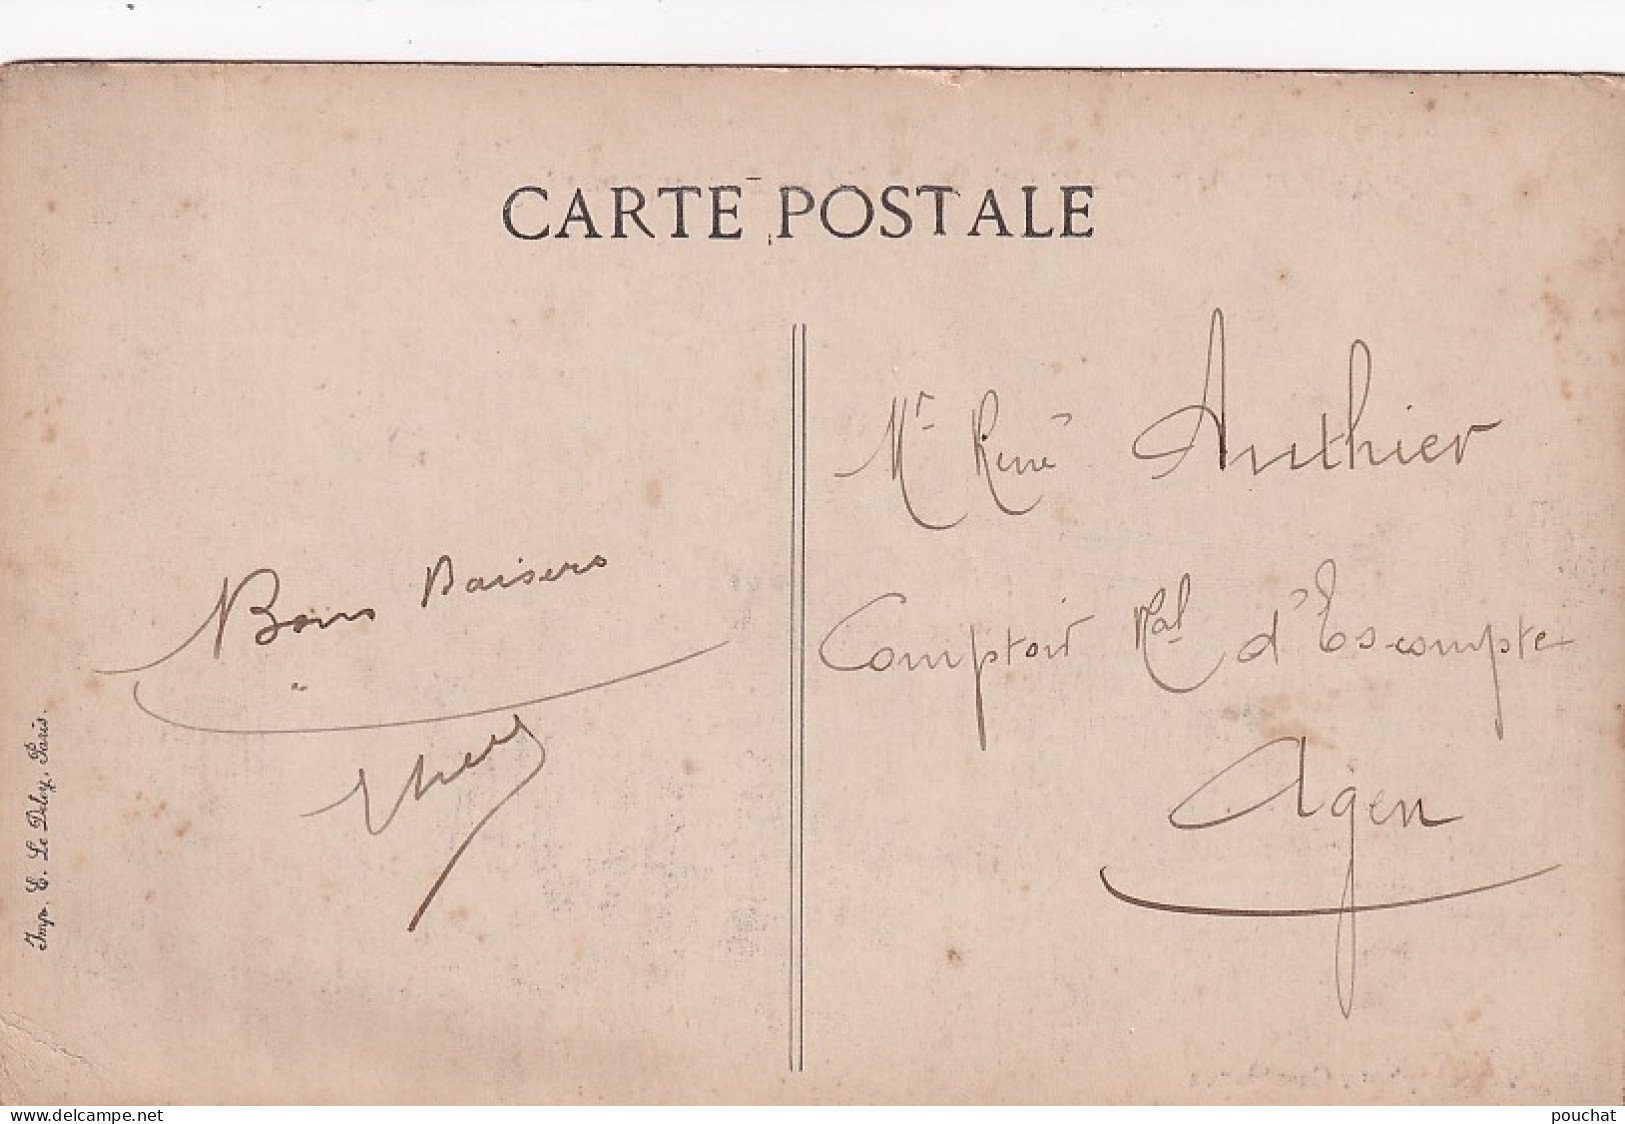 CARTE POSTALE
Bons Baisers
Mr René Authier
Comptoir Nal d'Escompte
Agen
Imp. E. Le Deley, Paris.
www.delcampe.net
pouchat